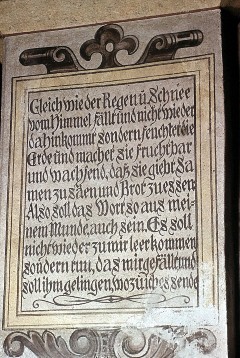 Gleich wie der Regen ũ Schnee
vom Himmel fällt und nicht wieder
dahin kommt sondern feuchtet die
Erde und machet sie fruchtbar
und wachsend, daß sie giebt Sa-
men zu säen und Brot zu essen.
Also soll das Wort so aus mei-
nem Munde, auch sein. Es soll
nicht wieder zu mir leer kommen
sondern tun, das mir gefällt und
soll ihm gelingen, wozu ichs sende